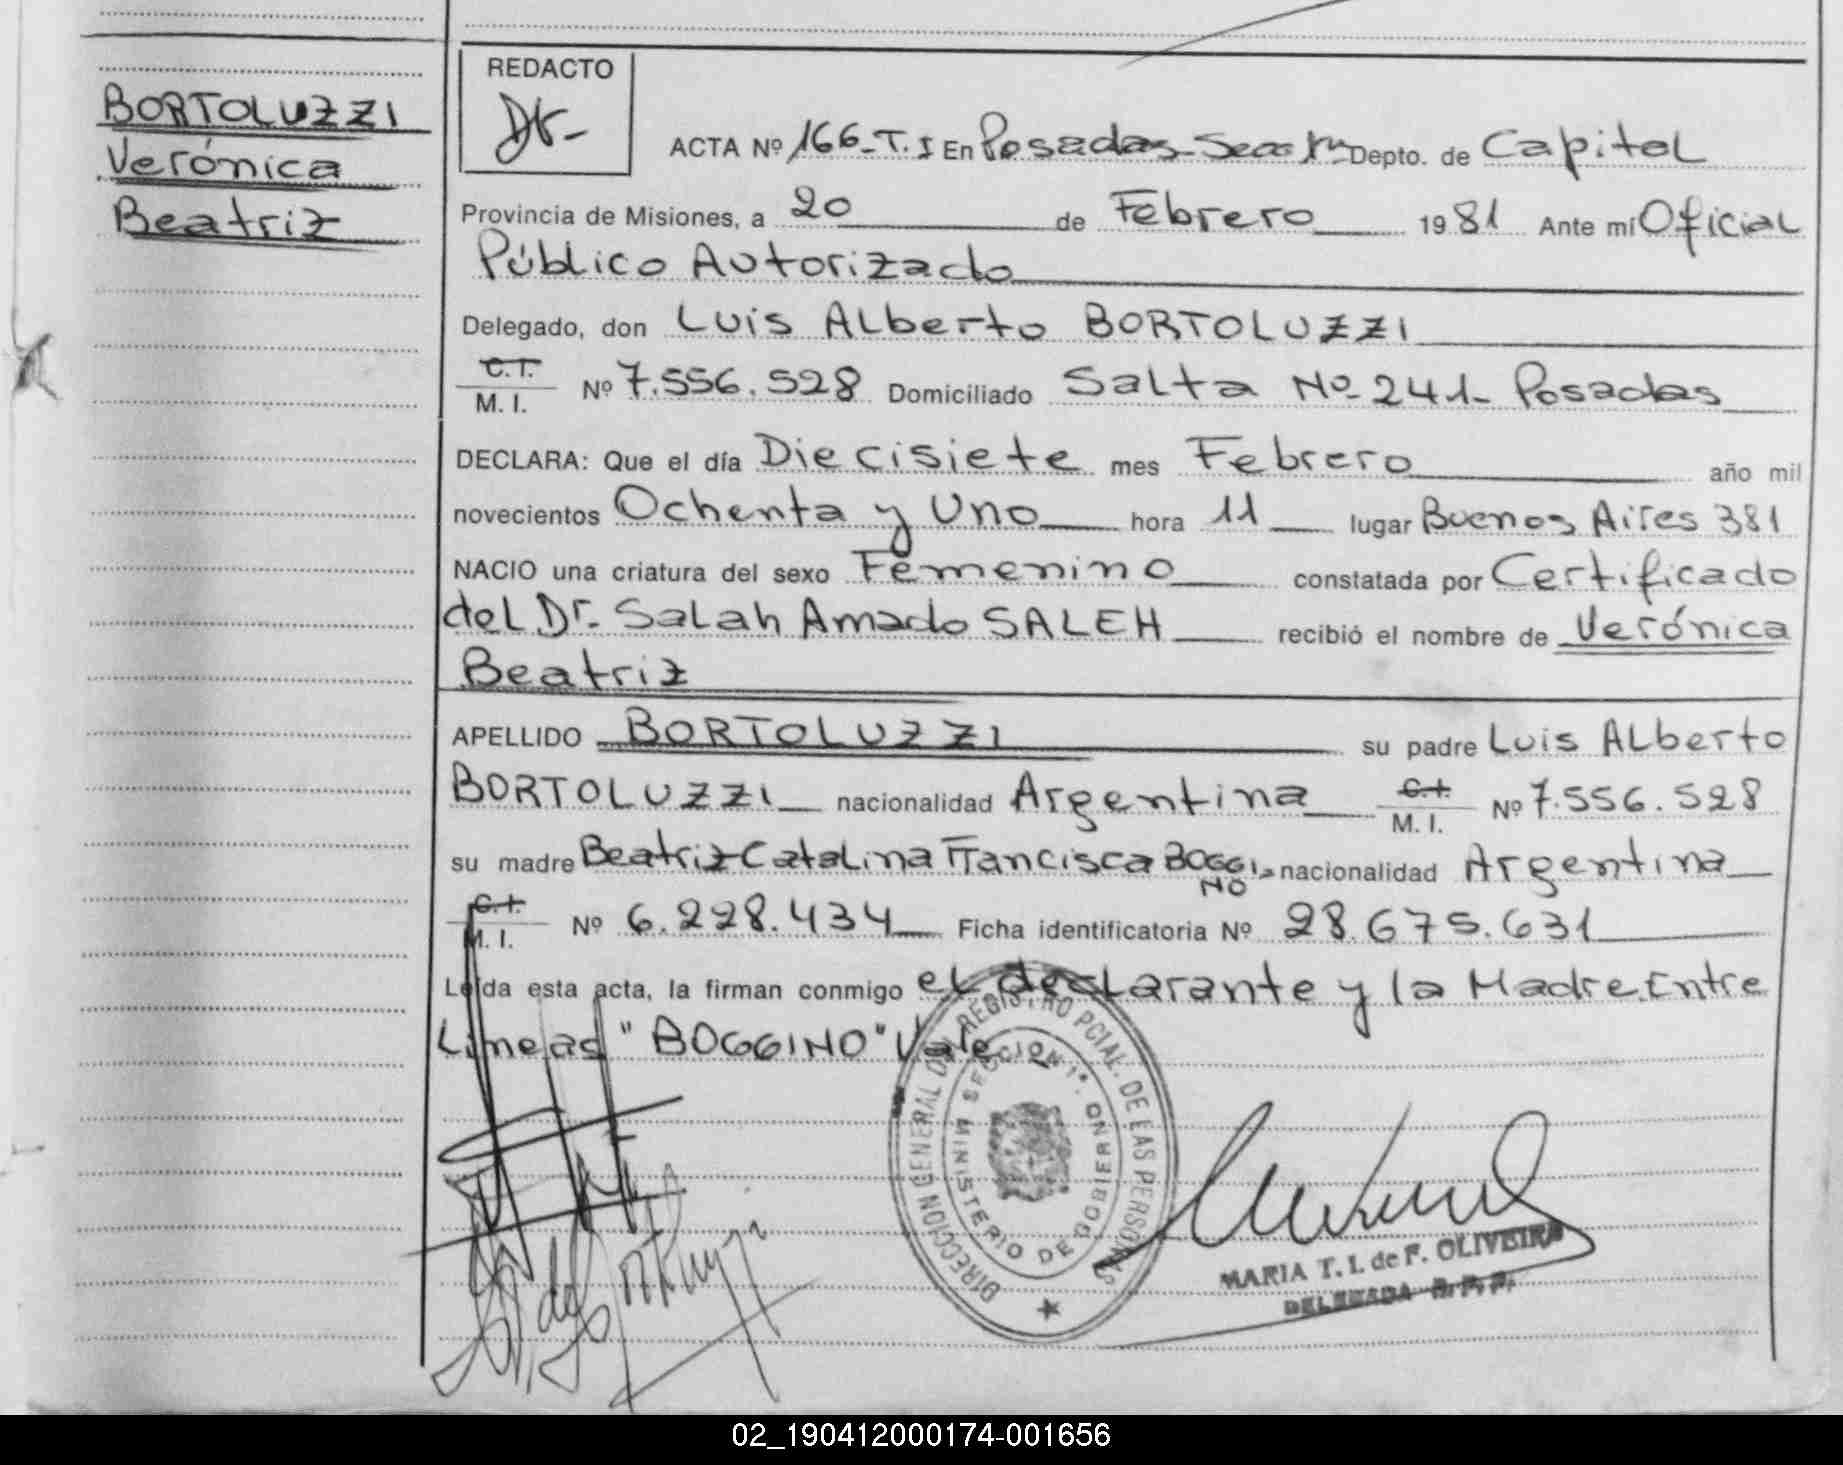 BORTOLUZZI
Verónica
Beatriz
REDACTO
ACTA Nº 166-T.I En Posadas Secc 1ra Depto. de Capital
Provincia de Misiones, a 20 de Febrero 1981 Ante mí Oficial
Público Autorizado
Delegado, don Luis Alberto BORTOLUZZI
C.I.
M. I. Nº 7.556.528 Domiciliado Salta Nº 241- Posadas
DECLARA: Que el día Diecisiete mes Febrero año mil
novecientos Ochenta y Uno hora 11 lugar Buenos Aires 381
NACIO una criatura del sexo Femenino constatada por Certificado
del Dr. Salah Amado SALEH recibió el nombre de Verónica
Beatriz
APELLIDO BORTOLUZZI su padre Luis Alberto
BORTOLUZZI nacionalidad Argentina C.I.
M. I. Nº 7.556.528
su madre Beatriz Catalina Francisca BOGGI-
NO nacionalidad Argentina
C.I.
M. I. Nº 6.228.434 Ficha identificatoria Nº 28.675.631
Leída esta acta, la firman conmigo el declarante y la Madre. Entre
Líneas "BOGGINO" Vale
DIRECCION GENERAL DEL REGISTRO PCIAL. DE LAS PERSONAS
SECCION 1ª.
MINISTERIO DE GOBIERNO
MARIA T. I. de F. OLIVEIRA
DELEGADA R. P. P.
02_190412000174-001656